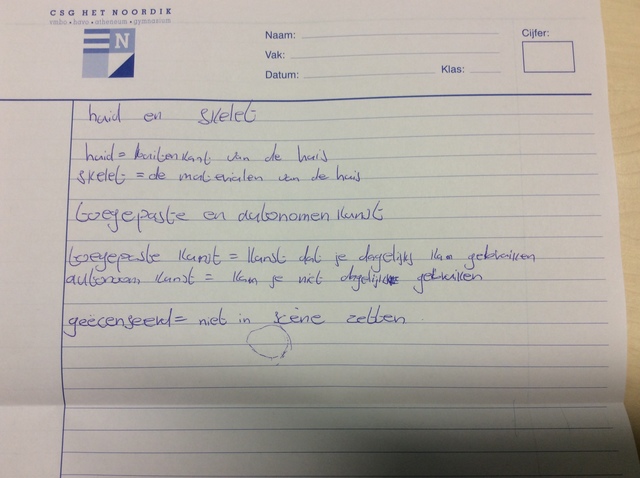 CSG HET NOORDIK
vmbo • havo • atheneum • gymnasium
N
Naam:
Vak:
Datum:
Klas:
Cijfer:
huid en skelet
huid = buitenkant van de huis
skelet = de materialen van de huis
toegepaste en autonomen kunst
toegepaste kunst = kunst dat je dagelijks kan gebruiken
autonoom kunst = kan je niet dagelijks gebruiken
geëcenseerd = niet in scène zetten